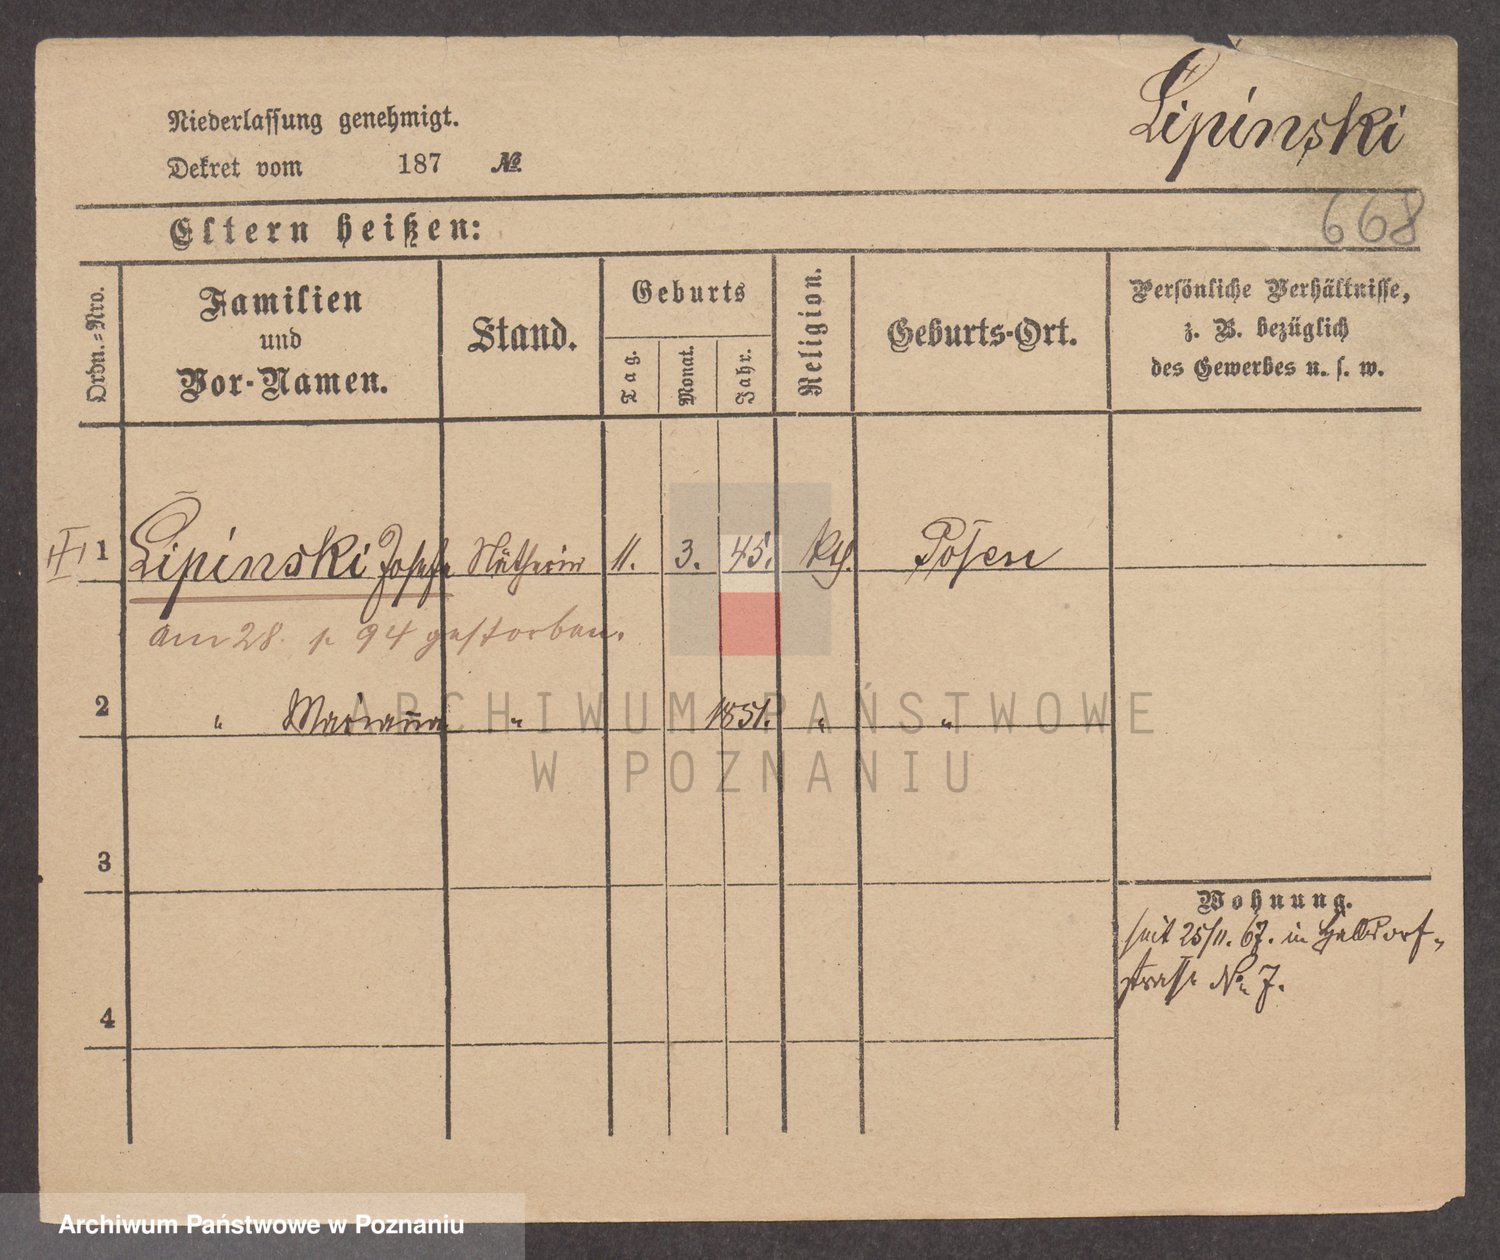 Lipinski
Niederlassung genehmigt.
Dekret vom 187 №
668
Eltern heißen:
Ordn.-Nro.
Familien
und
Vor-Namen.
Stand.
Geburts
Tag.
Monat.
Jahr.
Religion.
Geburts-Ort.
Persönliche Verhältnisse,
z. B. bezüglich
des Gewerbes u. s. w.
1 Lipinski Josefa Nätherin 11. 3. 45. kth. Posen
am 28. 94 gestorben.
2 " Marianna " 1851. " "
3
4
Wohnung.
seit 25/11. 67. in Halbdorf-
strasse No 7.
ARCHIWUM PAŃSTWOWE
W POZNANIU
Archiwum Państwowe w Poznaniu